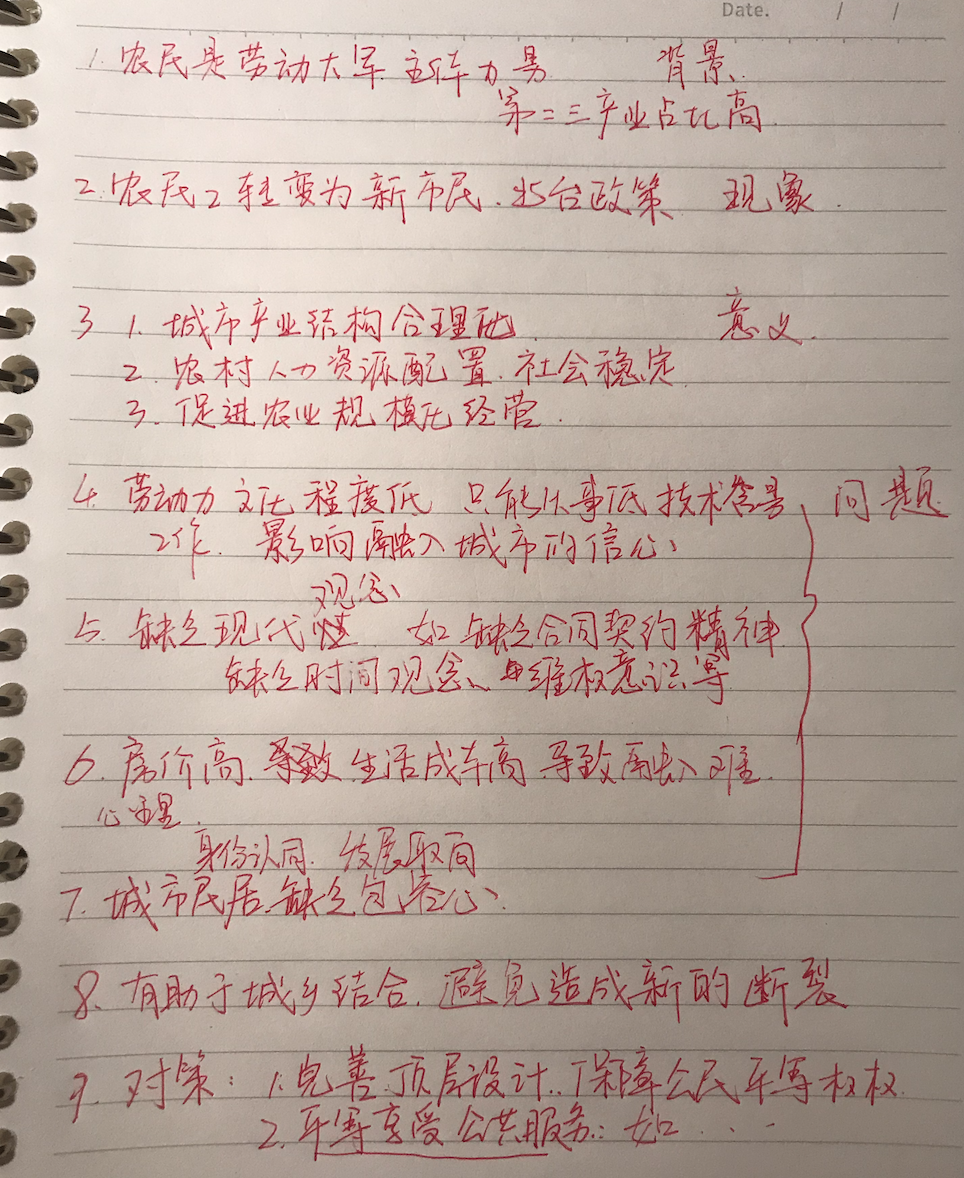 Date. / /
1. 农民是劳动大军 主体力男 背景
第二三产业占比高
2. 农民工转变为新市民. 出台政策 现象.
3 1. 城市产业结构合理化 意义.
2. 农村人力资源配置. 社会稳定
3. 促进农业规模化经营.
4. 劳动力文化程度低 只能从事低技术含量 问题
工作. 影响融入城市的信心
观念
5. 缺乏现代性 如缺乏合同契约精神
缺乏时间观念、维权意识等
6. 房价高. 导致生活成本高 导致融入难.
心理.
身份认同. 发展取向
7. 城市民居. 缺乏包容心
8. 有助于城乡结合. 避免造成新的断裂
9. 对策: 1. 完善顶层设计. 保障公民平等权权.
2. 平等享受公共服务: 如 . . -